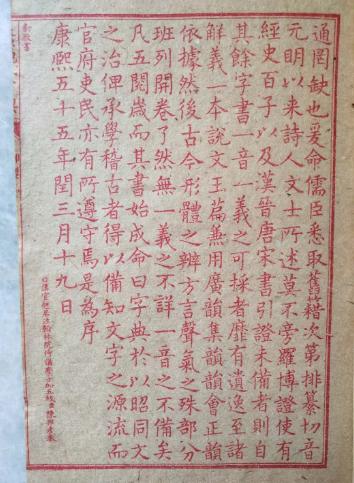 通罔缺也爰命儒臣悉取舊籍次第排纂切音
元明以來詩人文士所述莫不旁羅博證使有
經史百子以及漢晉唐宋書引證未備者則自
其餘字書一音一義之可採者靡有遺逸至諸
解義一本說文玉篇兼用廣韻集韻韻會正韻
依據然後古今形體之辨方言聲氣之殊部分
班列開卷了然無一義之不詳一音之不備矣
凡五閱歲而其書始成命曰字典於以昭同文
之治俾承學稽古者得以備知文字之源流而
官府吏民亦有所遵守焉是為序
康熙五十五年閏三月十九日
日講官起居注翰林院侍讀學士加五級臣陳邦彥奉